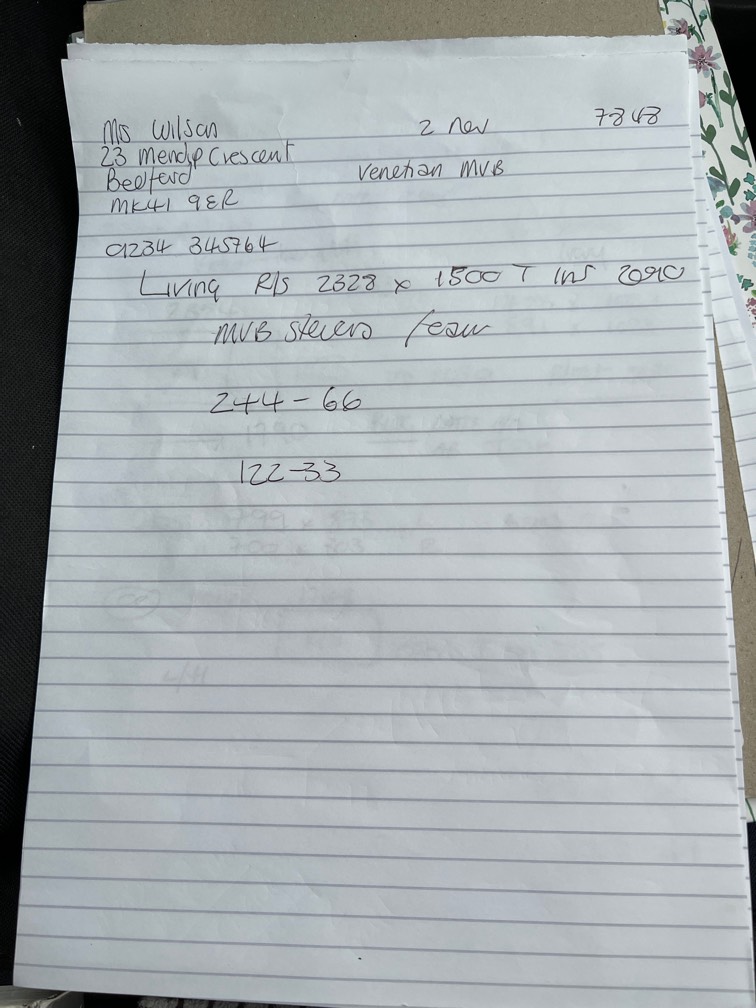 Mrs Wilson 2 Nov 7848
23 Mendip Crescent
Bedford Venetian MVB
MK41 9ER
01234 345764
Living R/S 2328 x 1500 T Ins
MVB
244-66
122-33